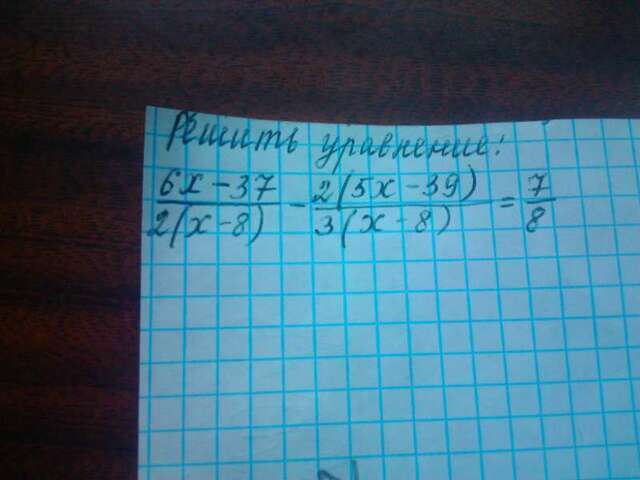 Решить уравнение:
6x-37/2(x-8) - 2(5x-39)/3(x-8) = 7/8